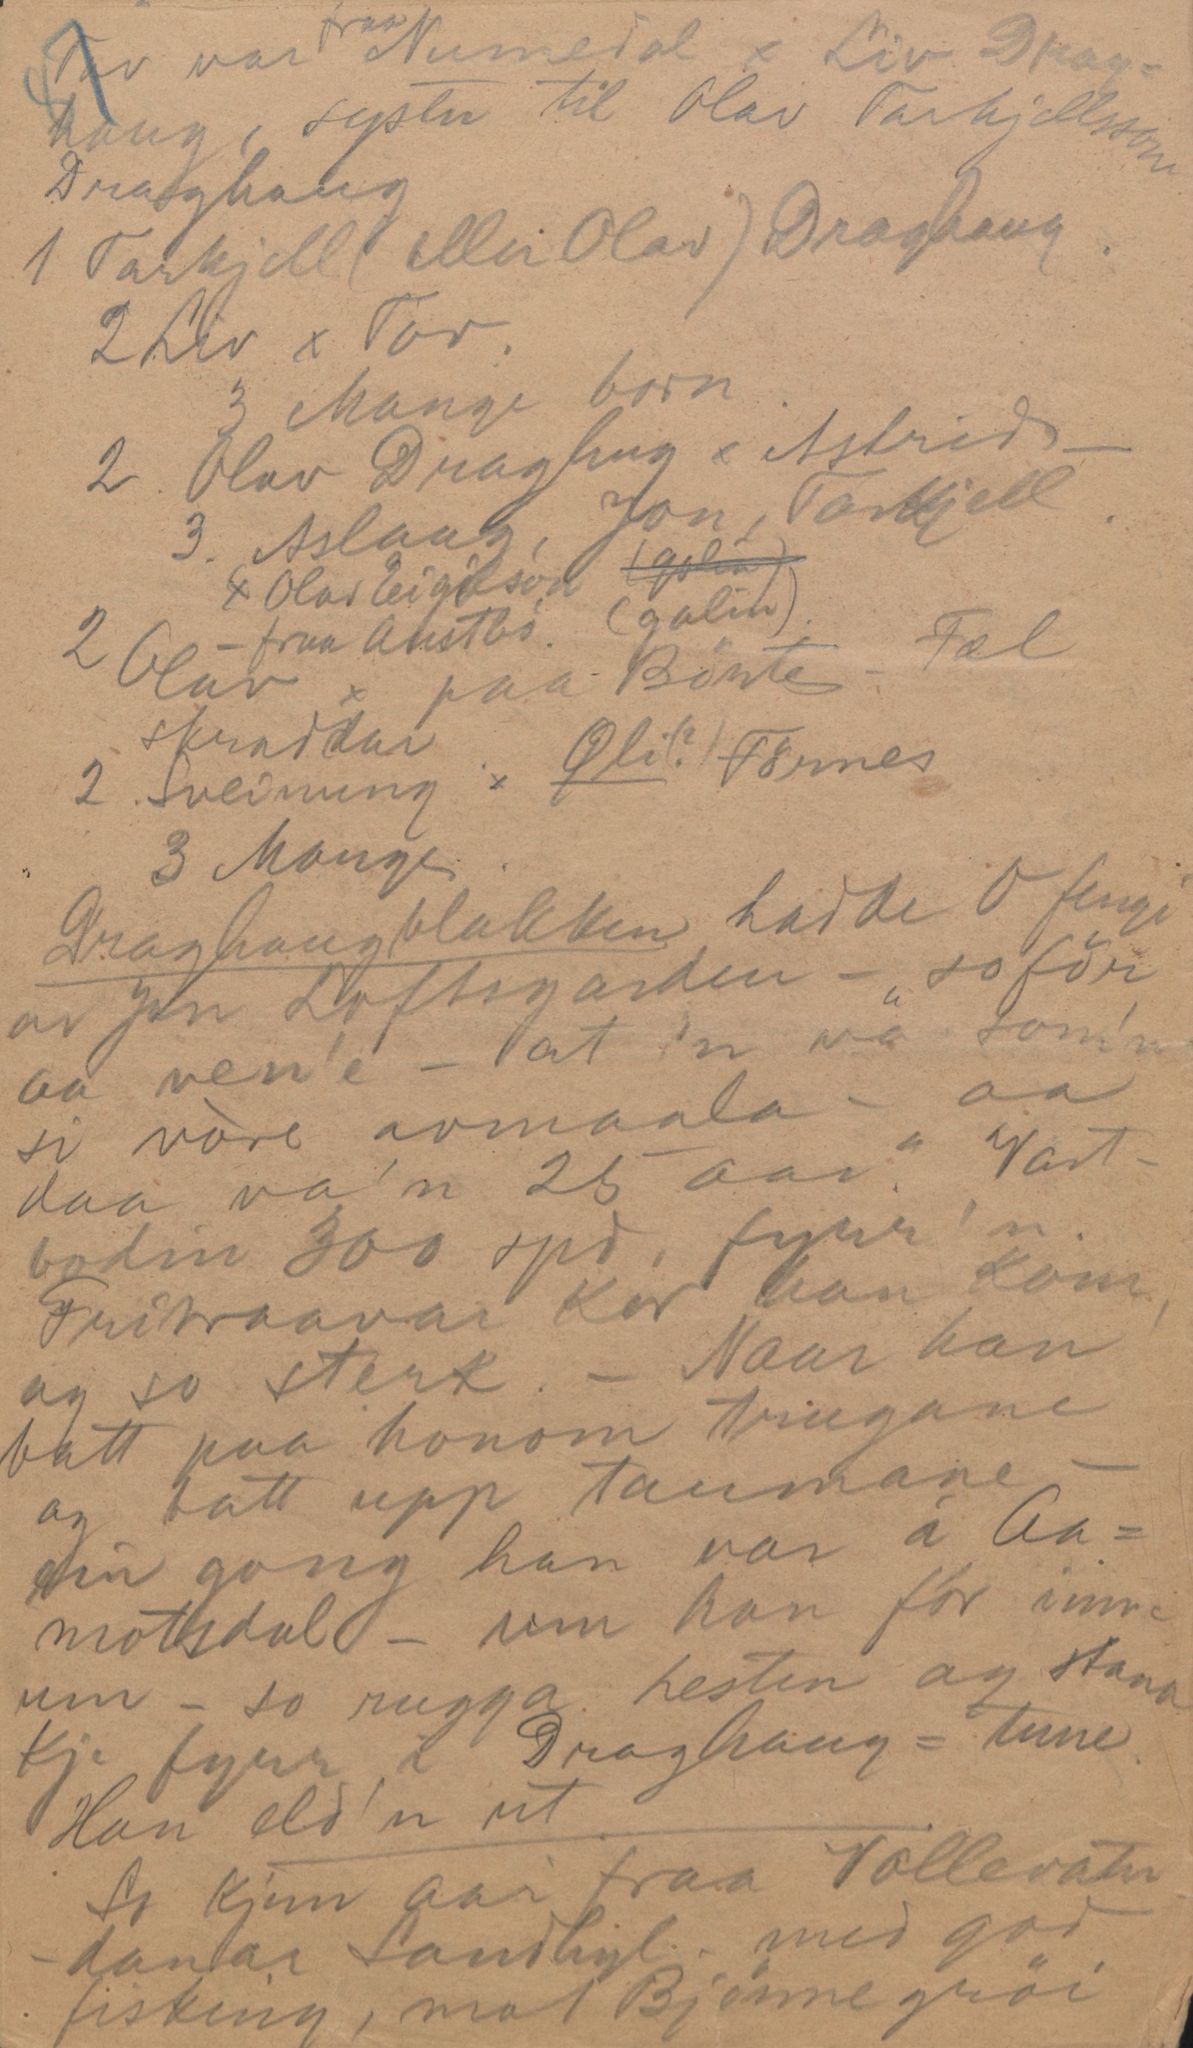 47
Tov var fraa Numedal x Liv Drag=
haug, syster til Olav Tarkjellsson
Draghaug
1 Tarkjell (eller Olav) Draghaug.
2 Liv x Tov.
3 Mange born.
2. Olav Draghug x Astrid –
3. Aslaug, Jon, Tarkjell.
x Olav Eigilson (galin)
– fraa Austbö. (galin).
2 Olav x paa Bönte – Fæl
skraddar
2. Sveinung x Oli(?) Törnes
3 Mange.
Draghaugblakken hadde O fengi
av Jon Loftsgarden – „so för
aa ven'e – at 'n va som'n
si vòre avmaala – aa
daa va'n 25 aar." Vart
bodin 300 spd, fyrr'n.
Fritraavar kor han kom,
og so sterk. – Naar han
batt paa honom triugane
og batt upp taumane –
ein gong han var i Aa=
motsdal – um han för inn=
um – so rugga hesten og stana
kje fyrr i Draghaug=tune.
Han eld'n ut.
So kjem aai fraa Vollevatn
– danar Landhyl. med god
fisking, mot Björnegröi